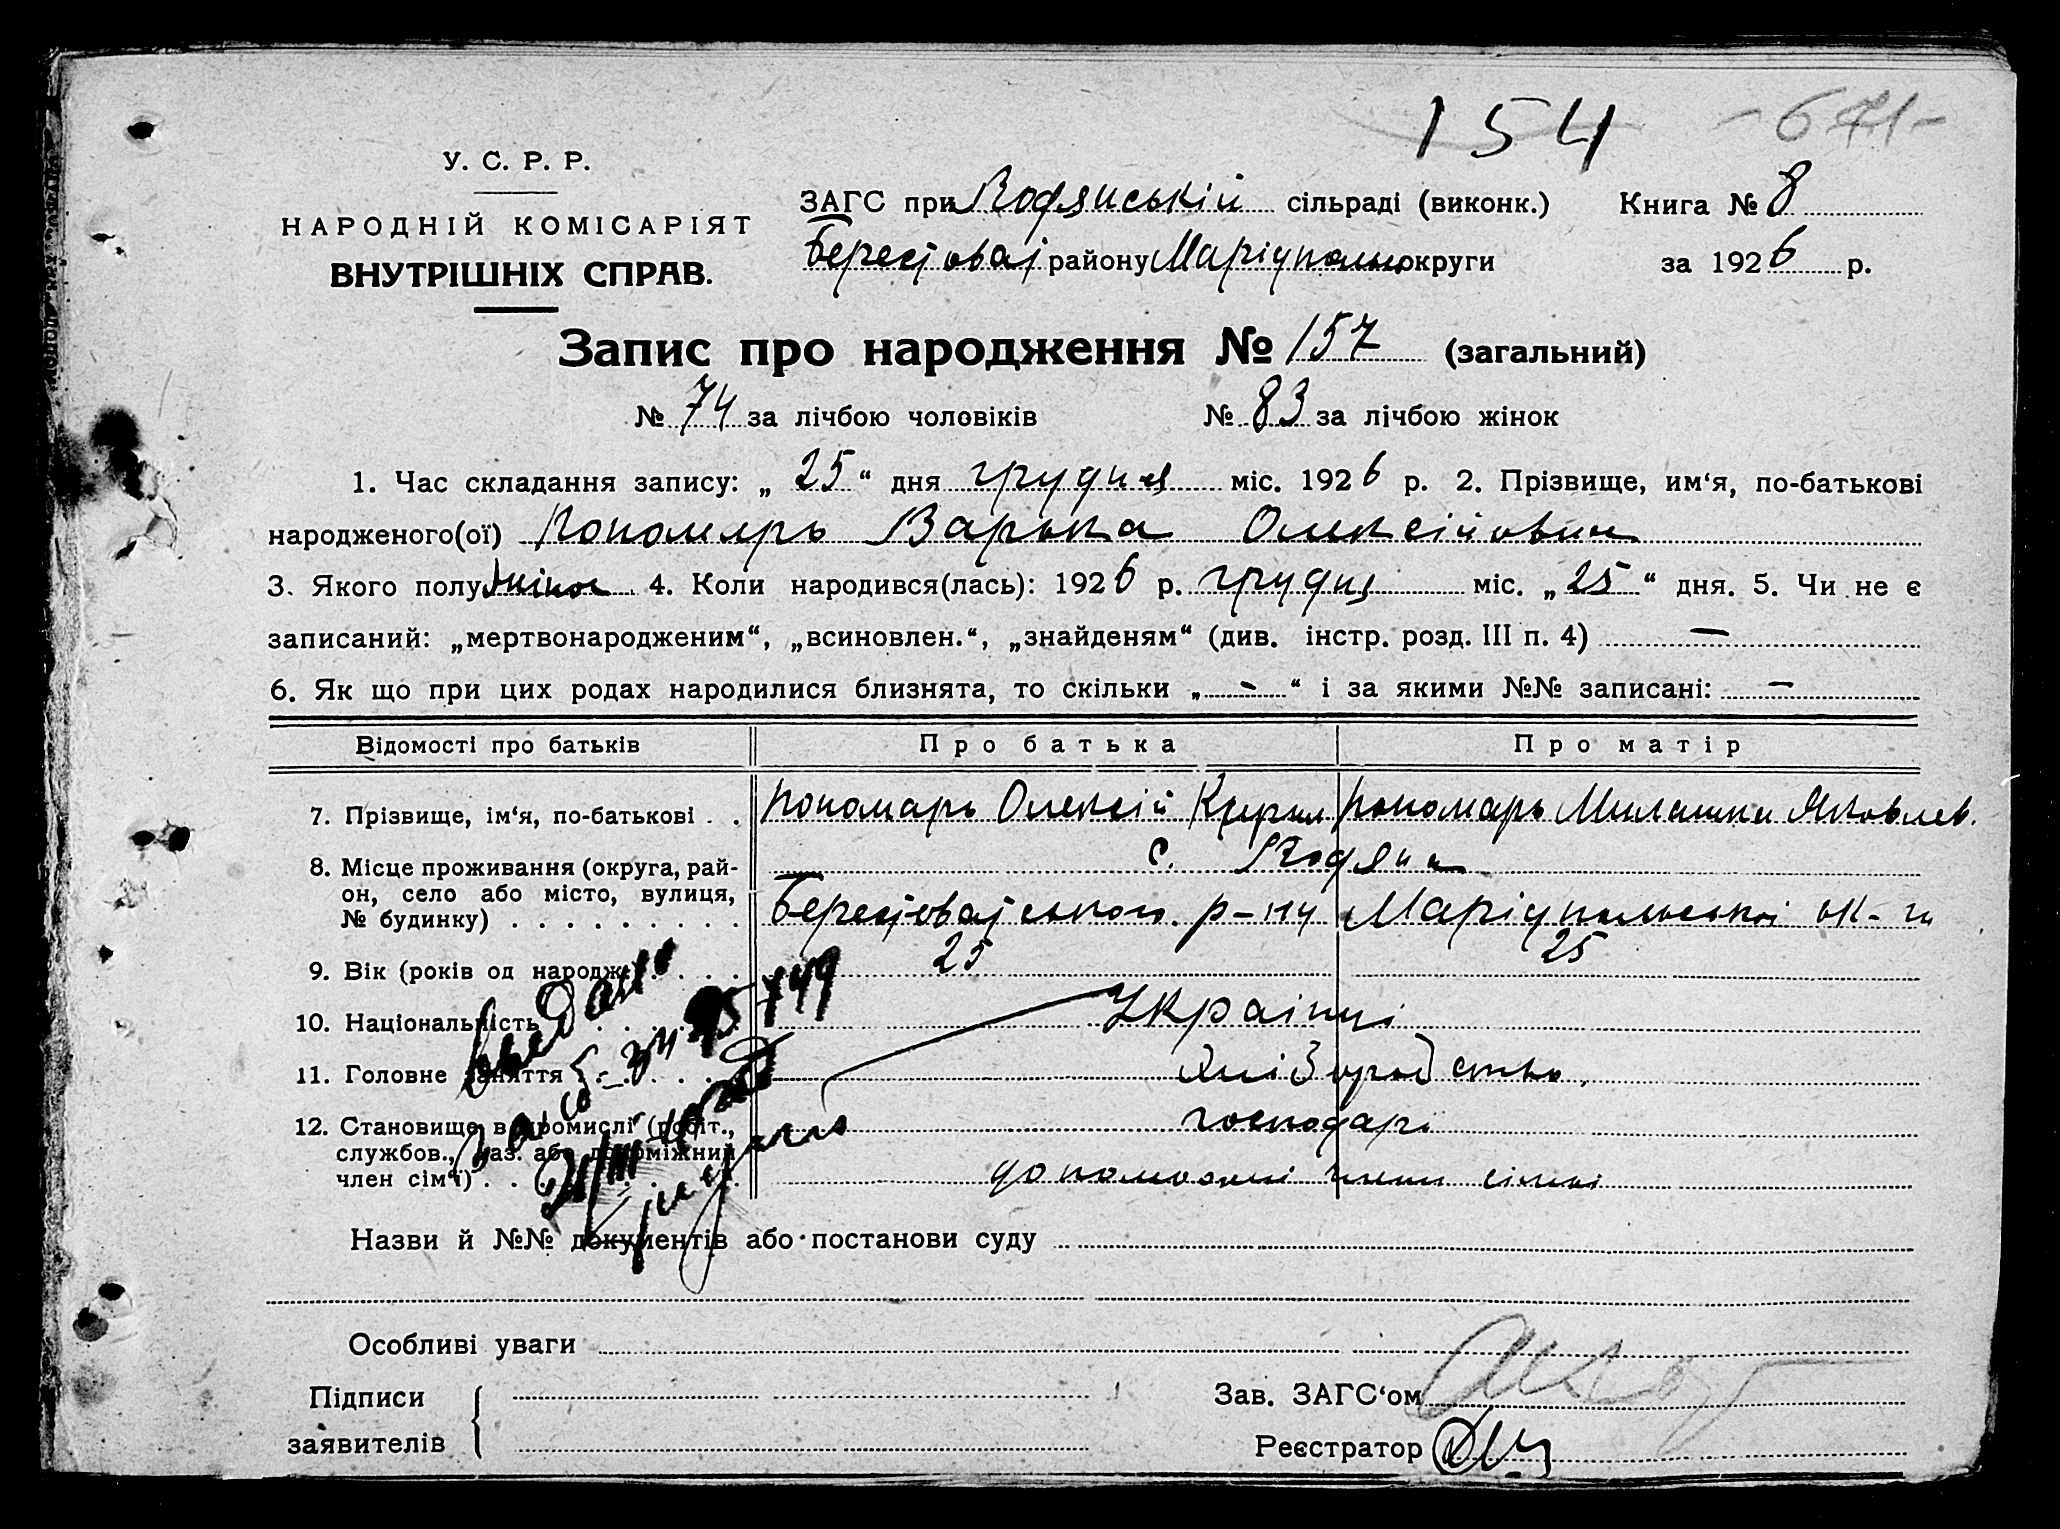 154 -671-
У. С. Р. Р.
НАРОДНІЙ КОМІСАРІЯТ
ВНУТРІШНІХ СПРАВ.
ЗАГС при Водянській сільраді (виконк.) Книга № 8
Берестовай району Маріупольс округи за 1926 р.
Запис про народження № 157 (загальний)
№ 74 за лічбою чоловіків № 83 за лічбою жінок
1. Час складання запису: „ 25 “ дня грудня міс. 1926 р. 2. Прізвище, им‘я, по-батькові
народженого(ої) Пономарь Варька Олексійовна
3. Якого полу жіноч 4. Коли народився(лась): 1926 р. грудня міс. „ 25 “ дня. 5. Чи не є
записаний: „мертвонародженим“, „всиновлен.“, „знайденям“ (див. інстр. розд. III п. 4) —
6. Як що при цих родах народилися близнята, то скільки „ - “ і за якими №№ записані: —
Відомості про батьків Про батька Про матір
7. Прізвище, ім‘я, по-батькові . . Пономарь Олексій Кирил Пономарь Милашка Яковлев.
8. Місце проживання (округа, рай- с. Водяна
он, село або місто, вулиця,
№ будинку) . . . . . . . . . Берестовайського р-ну Маріупольської ок-ги
9. Вік (років од народж.) . . . . 25 25
10. Національність . . . . . . Українці
11. Головне заняття . . . . . . Хліборобство
12. Становище в промислі (робіт., господарі
службов., хаз. або допоміжний
член сім‘ї) . . допоможні члени сімьі
Назви й №№ документів або постанови суду
Особливі уваги
Підписи Зав. ЗАГС‘ом
заявителів Реєстратор